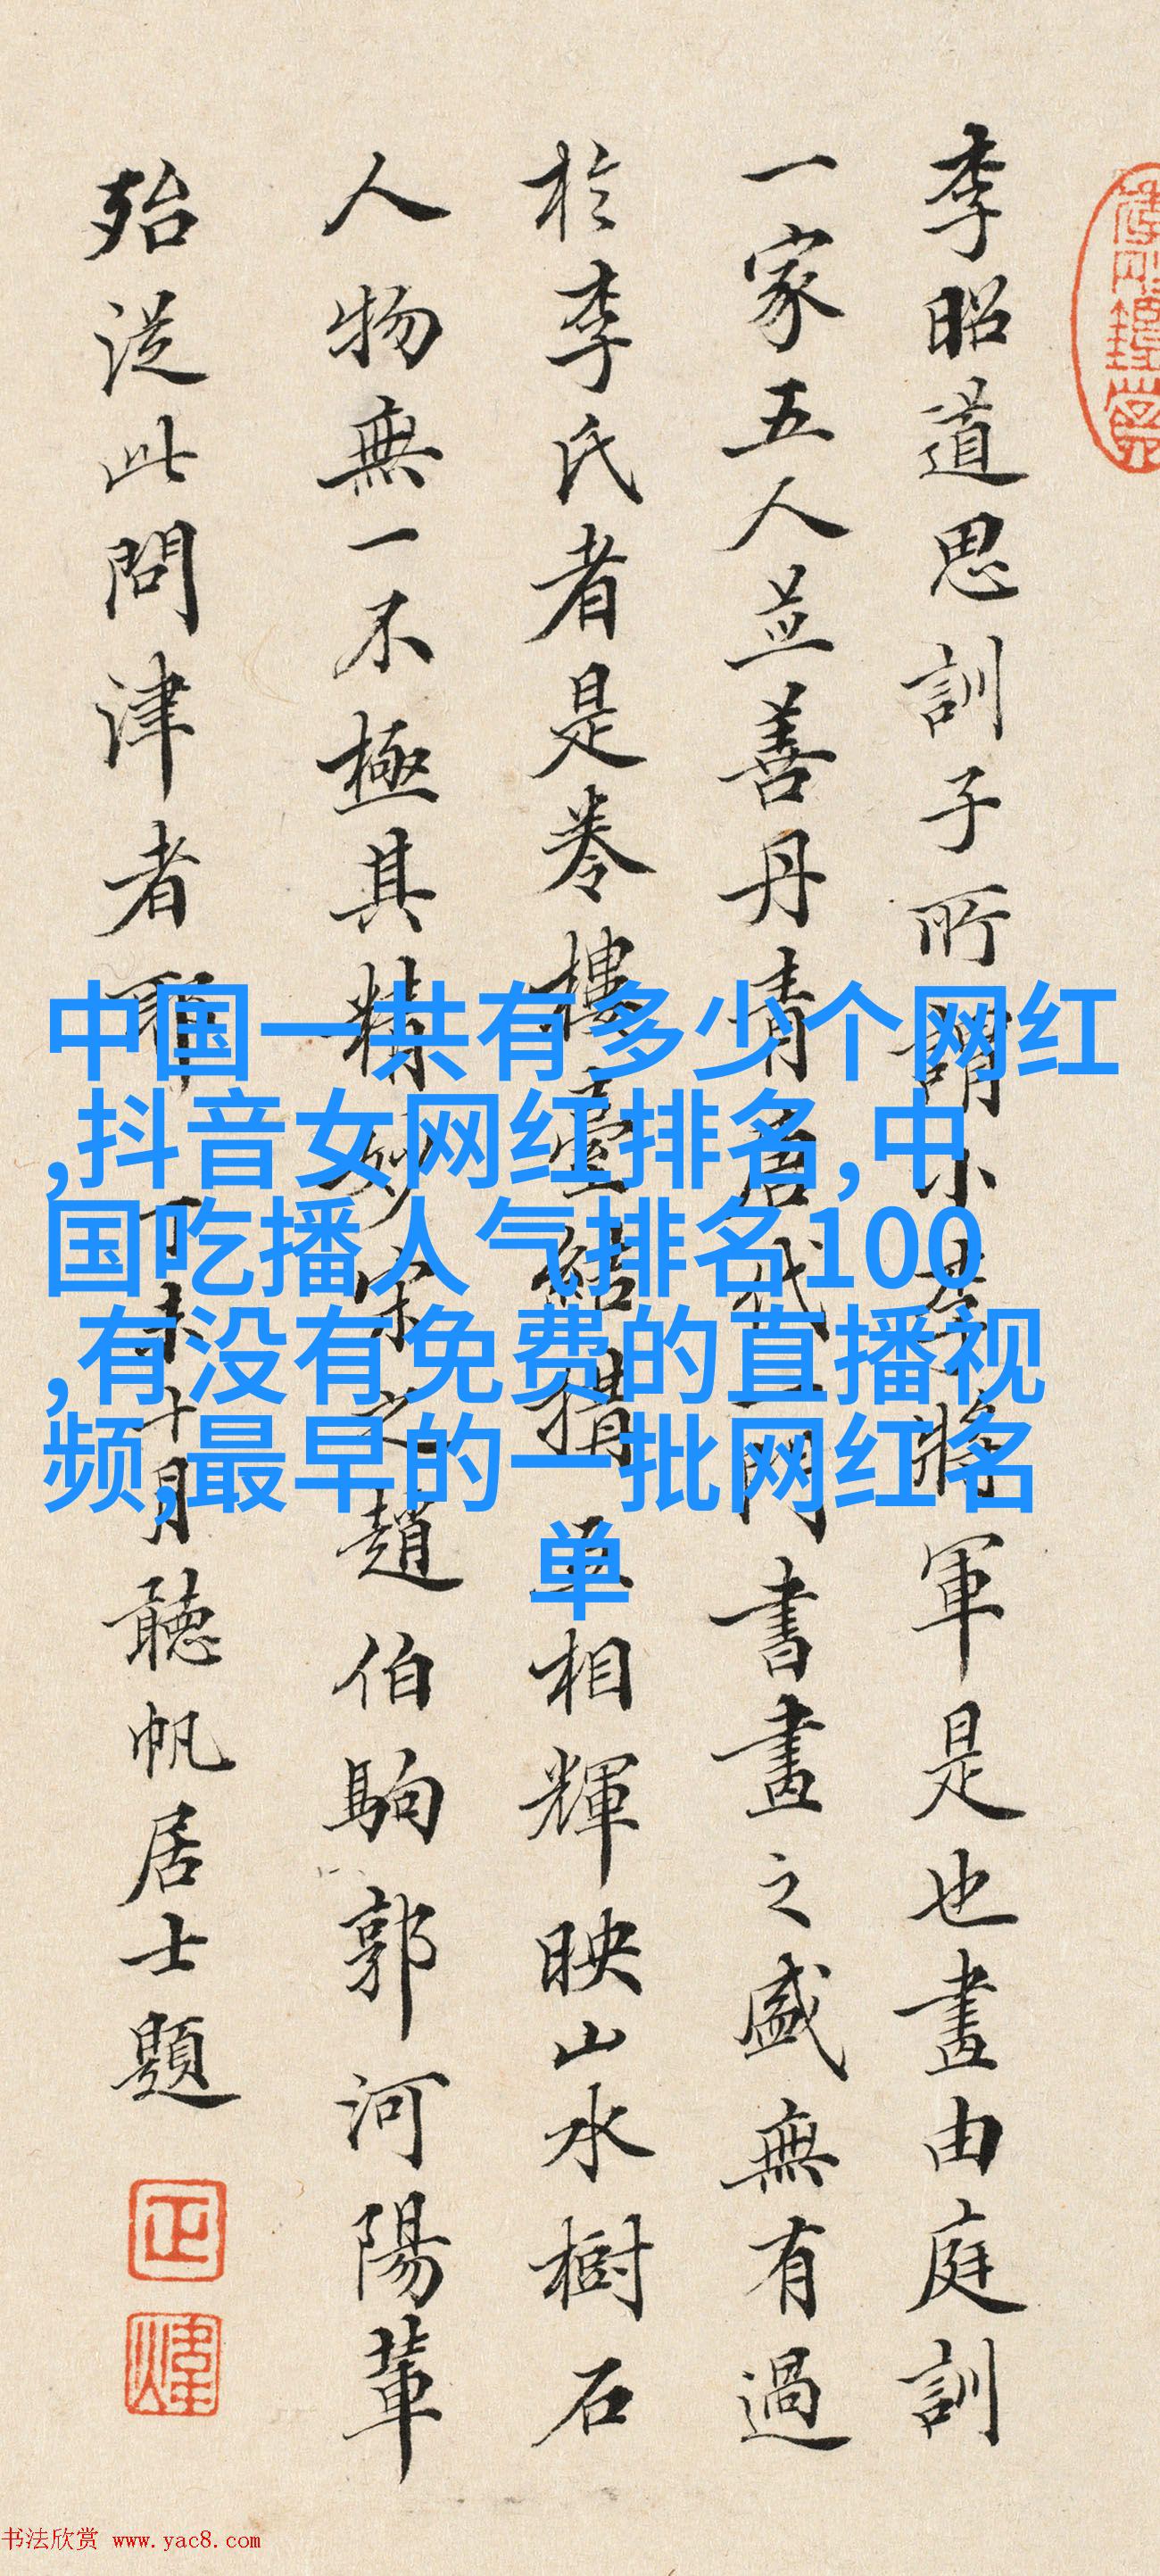 李昭道思訓子所謂小李將軍是也畫由庭訓
一家五人並善丹青唐代一門書畫之盛無有過
於李氏者是卷樓臺結構互相輝映山水樹石
人物無一不極其精妙宋之趙伯駒郭河陽輩
殆從此問津者耶丁未十月聽帆居士題
中国一共有多少个网红
,抖音女网红排名,中
国吃播人气排名100
,有没有免费的直播视
频,最早的一批网红名
单
书法欣赏 www.yac8.com